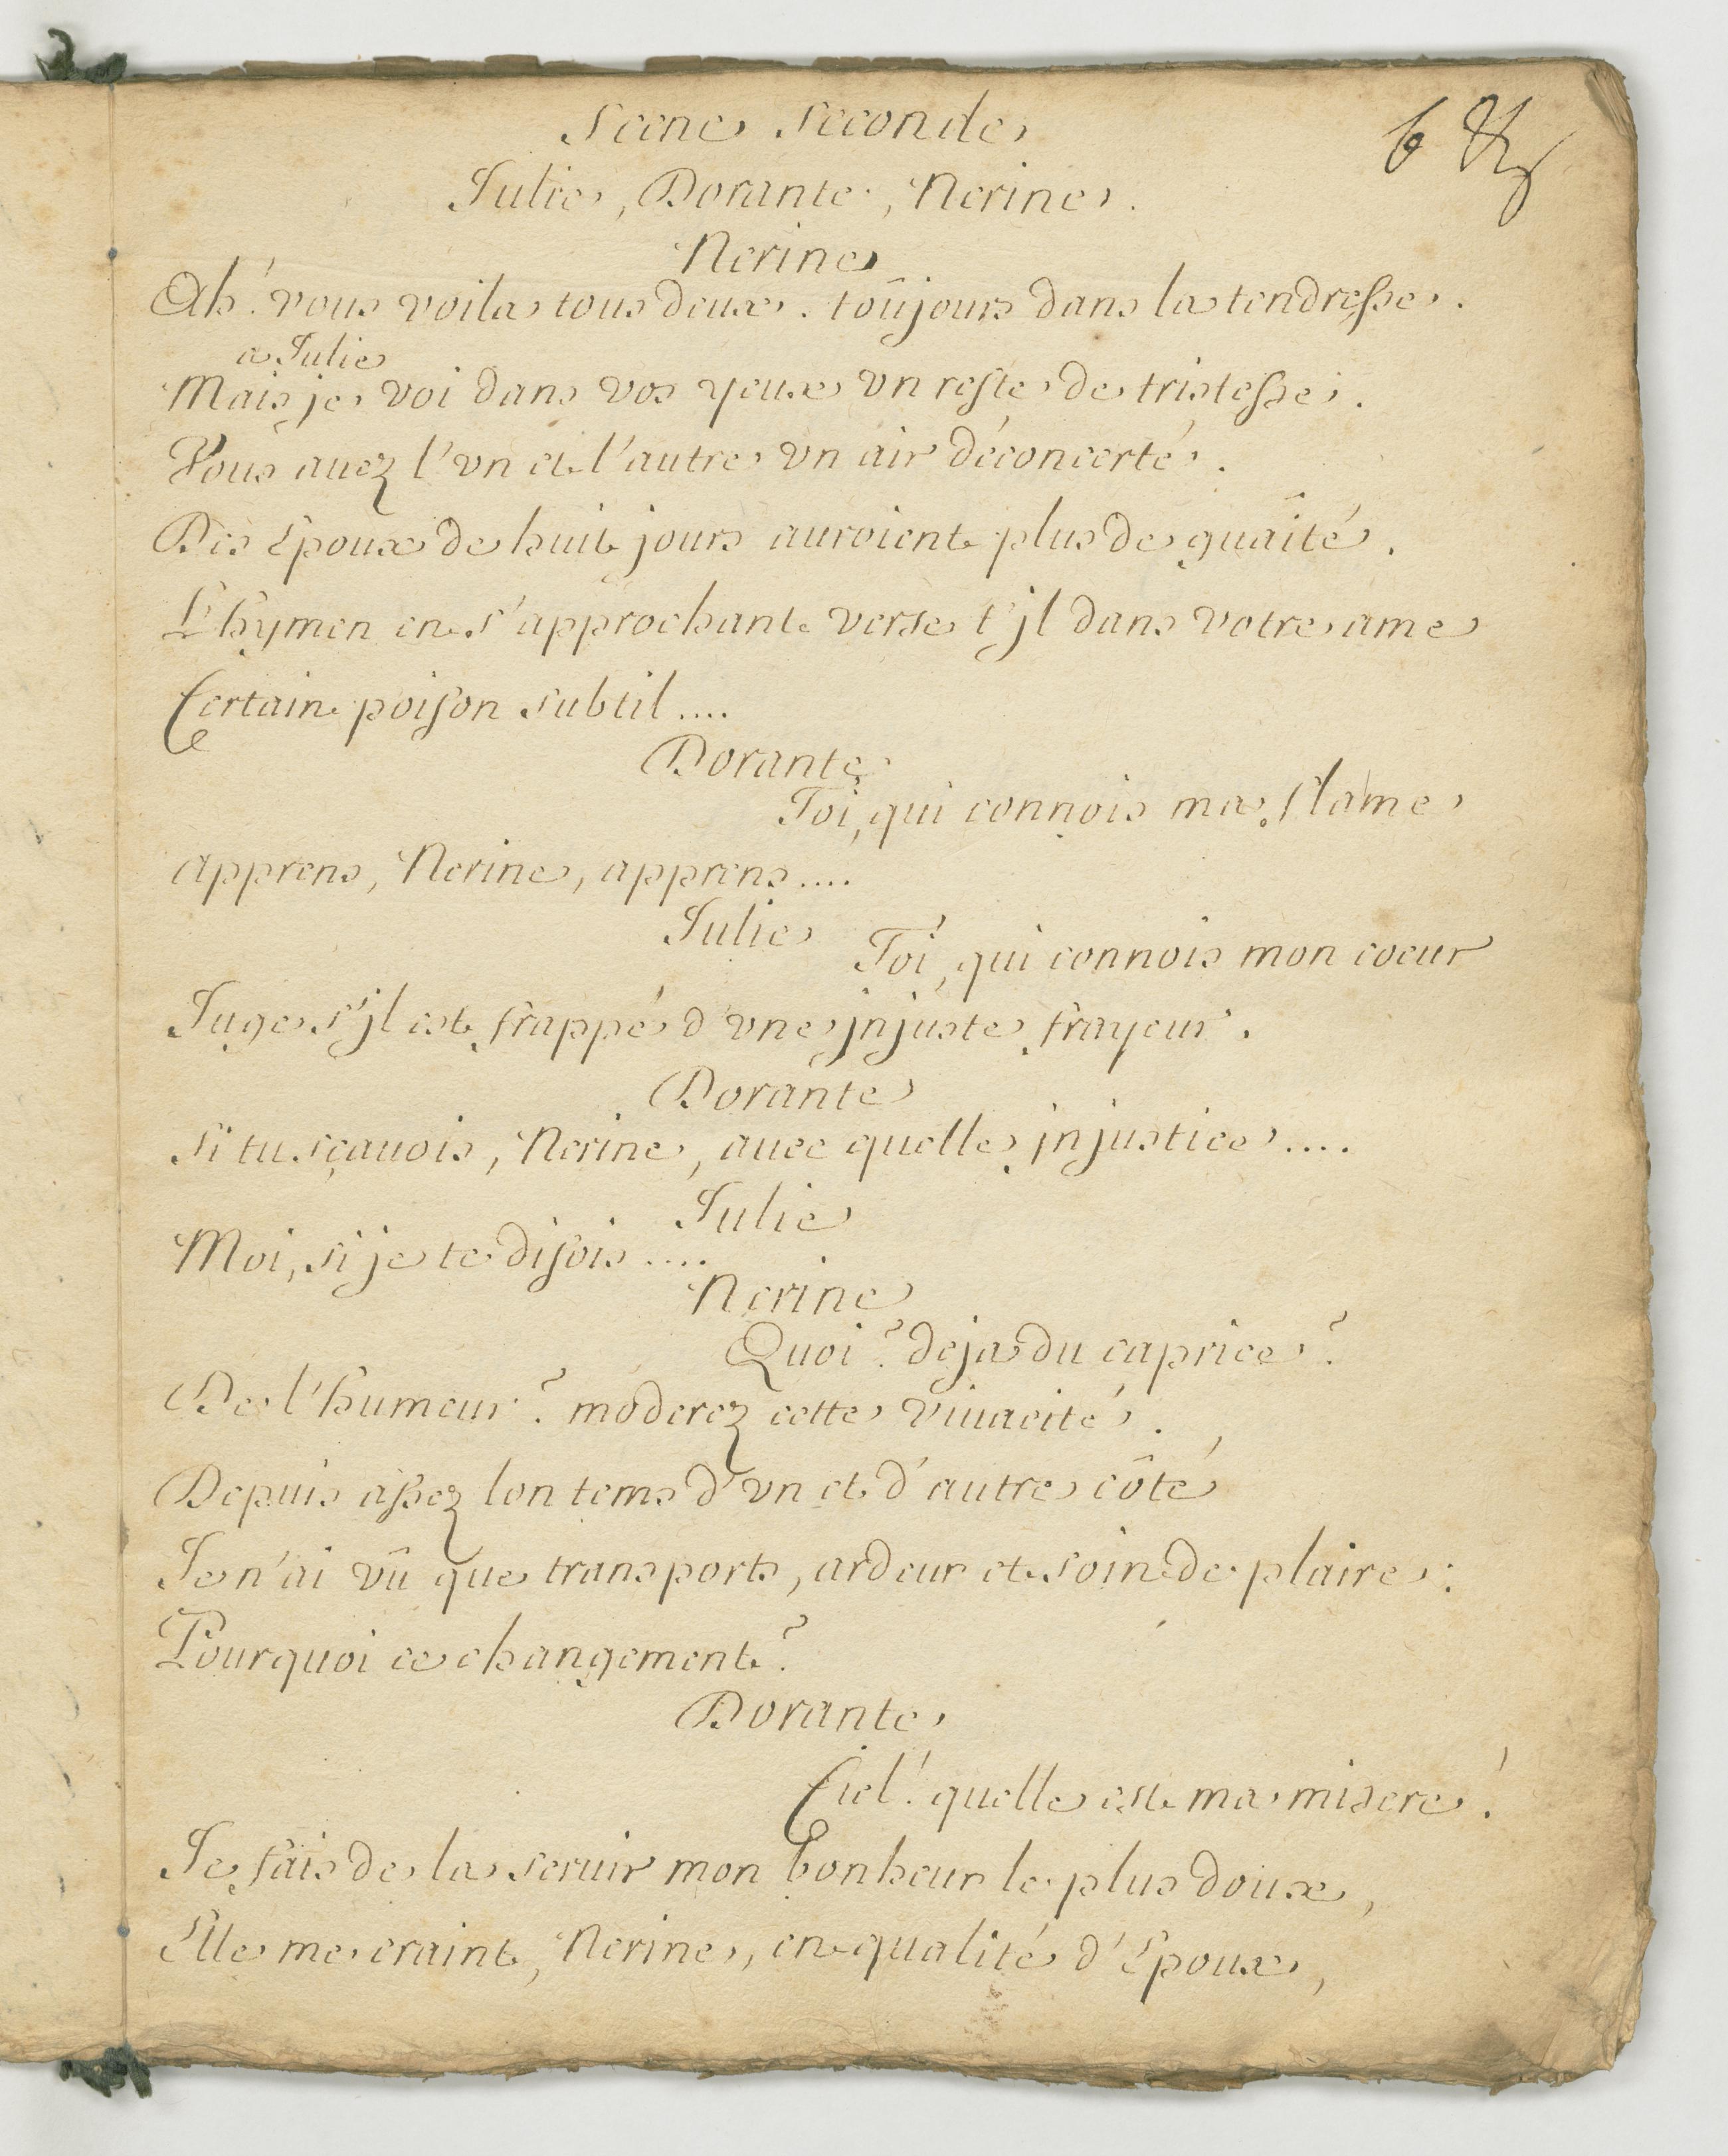 Scene Seconde
Julie, Dorante, Nerine.
6
Nerine
Ah! vous voila tous deux. toûjours dans la tendresse.
a Julie
Mais je voi dans vos yeux vn reste de tristesse.
Vous auez l'vn et l'autre vn air déconcerté.
Des Epoux de huit jours auroient plus de guaîté.
L'hymen en s'approchant verse t'jl dans votre ame
Certain poison subtil....
Dorante
Toi, qui connois ma flame
apprens, Nerine, apprens....
Julie
Toi, qui connois mon coeur
Juge s'jl est frappé d'vne jnjuste frayeur.
Dorante
Si tu sçauois, Nerine, auec quelle jnjustice....
Julie
Moi, si je te disois....
Nerine
Quoi? deja du caprice?
De l'humeur? moderez cette viuacité.
Depuis assez lontems d'vn et d'autre côté
Je n'ai vû que transports, ardeur et soin de plaire:
Pourquoi ce changement?
Dorante
Ciel! quelle est ma misere!
Je fais de la seruir mon bonheur le plus doux,
Elle me craint, Nerine, en qualité d'Epoux,